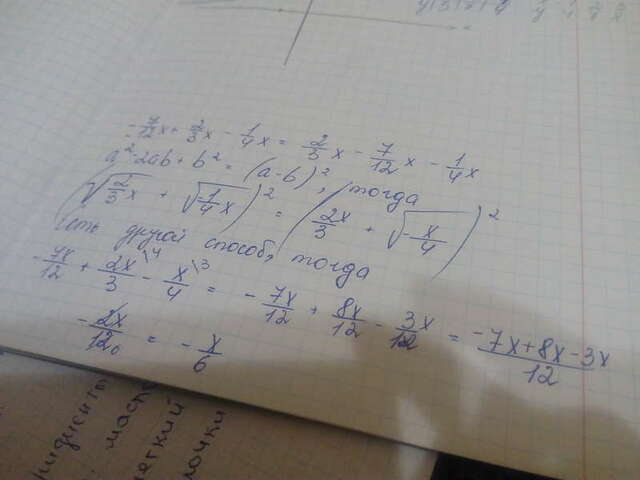 -7/12x + 2/3x - 1/4x = 2/3x - 7/12x - 1/4x
a² - 2ab + b² = (a-b)², тогда
(√(2/3x) + √(1/4x))² = (2x/3 + √(-x/4))²
Есть другой способ, тогда
-7x/12 + 2x/3\4 - x/4\3 = -7x/12 + 8x/12 - 3x/12 = (-7x+8x-3x)/12
-2x/12₆ = -x/6
маспо
лочки